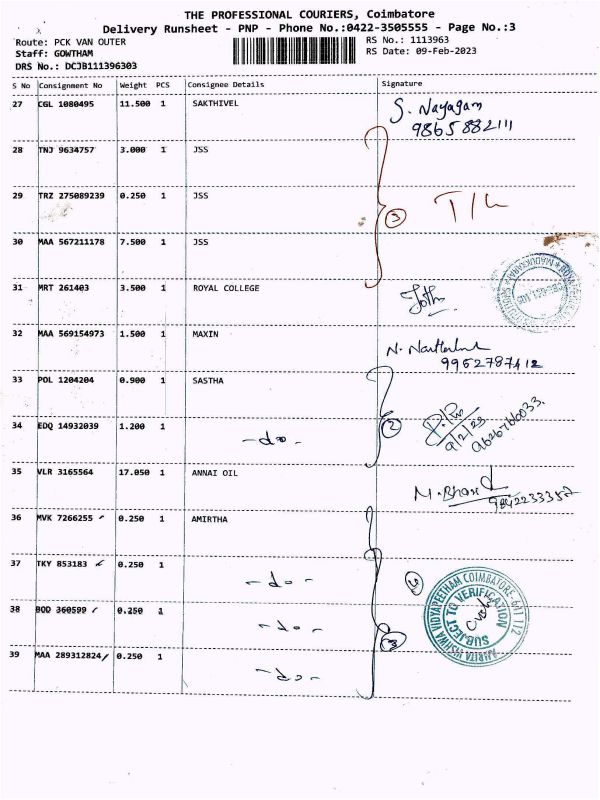 THE PROFESSIONAL COURIERS, Coimbatore
Delivery Runsheet - PNP - Phone No.:0422-3505555 - Page No.:3
Route: PCK VAN OUTER
Staff: GOWTHAM
DRS No.: DCJB111396303
RS No.: 1113963
RS Date: 09-Feb-2023
S No Consignment No Weight PCS Consignee Details Signature
27 CGL 1080495 11.500 1 SAKTHIVEL S. Nayagam
9865882111
28 TNJ 9634757 3.000 1 JSS
29 TRZ 275089239 0.250 1 JSS 3
30 MAA 567211178 7.500 1 JSS
31 MRT 261403 3.500 1 ROYAL COLLEGE
32 MAA 569154973 1.500 1 MAXIN
9952787412
33 POL 1204204 0.900 1 SASTHA
34 EDQ 14932039 1.200 1 -do- 2 9/2/23
35 VLR 3165564 17.050 1 ANNAI OIL
36 MVK 7266255 0.250 1 AMIRTHA
37 TKY 853183 0.250 1 -do-
38 BOD 360599 0.250 1 -do-
39 MAA 289312824 0.250 1 -do-
AMRITA VISHWA VIDYAPEETHAM COIMBATORE-641 112
SUBJECT TO VERIFICATION